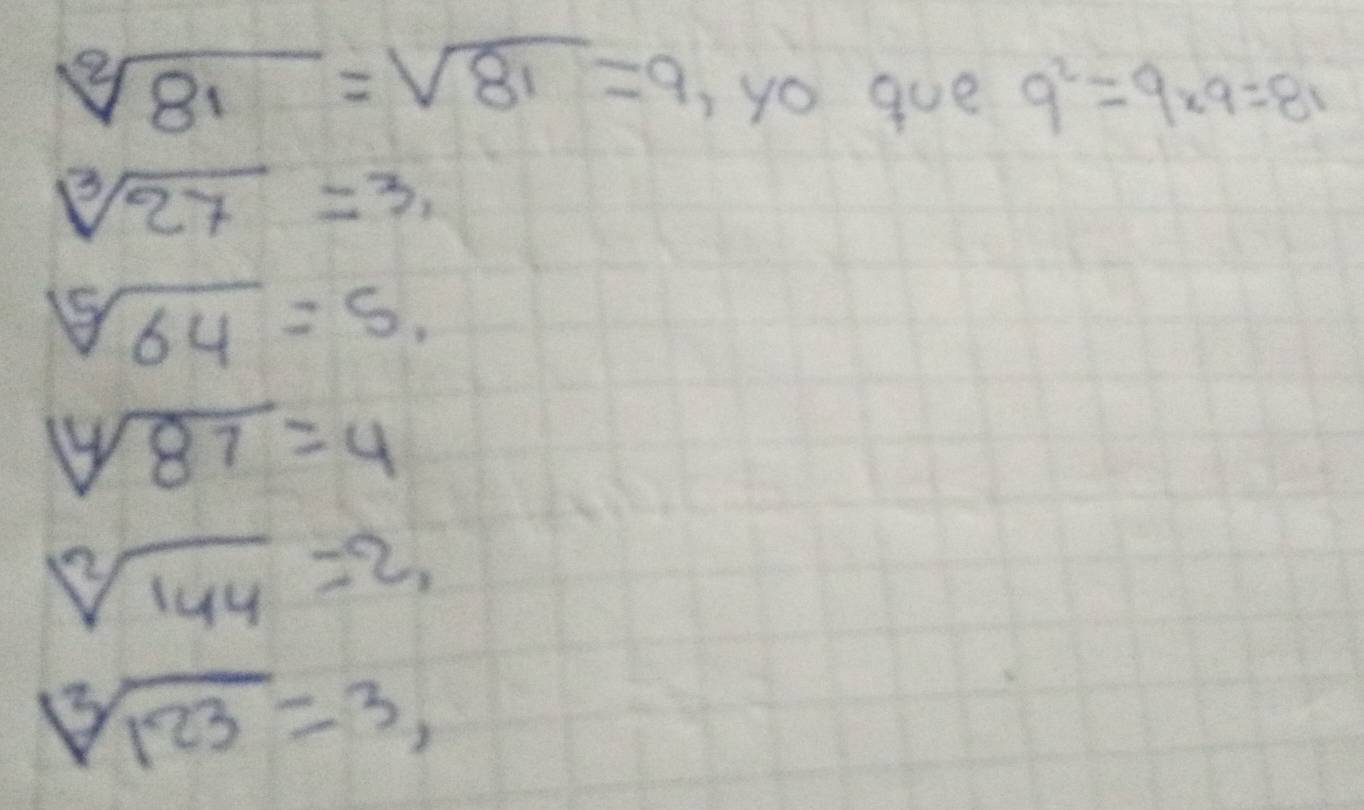 ²√81 = √81 = 9, yo que 9² = 9x9=81
³√27 = 3,
⁵√64 = 5.
⁴√81 = 4
²√144 = 2,
³√123 = 3,